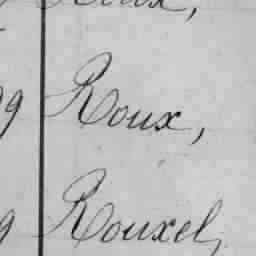 Roux,
9 Roux,
9 Rouxel,